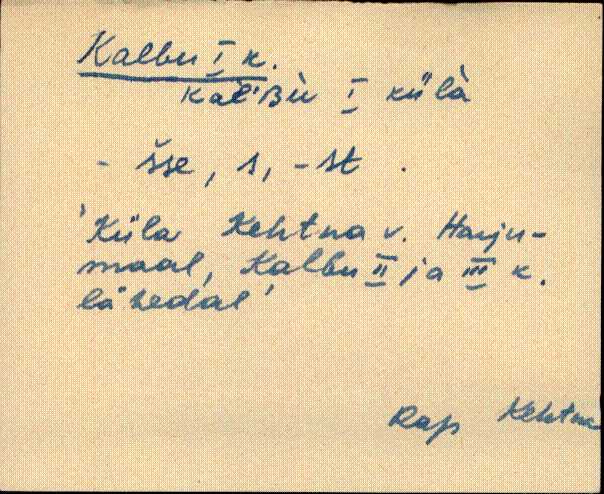 Kalbu I k.
kal'ʙù I külà
- šse, s, -st .
'Küla Kehtna v. Harju-
maal, Kalbu II ja III k.
läsedal'
Rap Kehtna